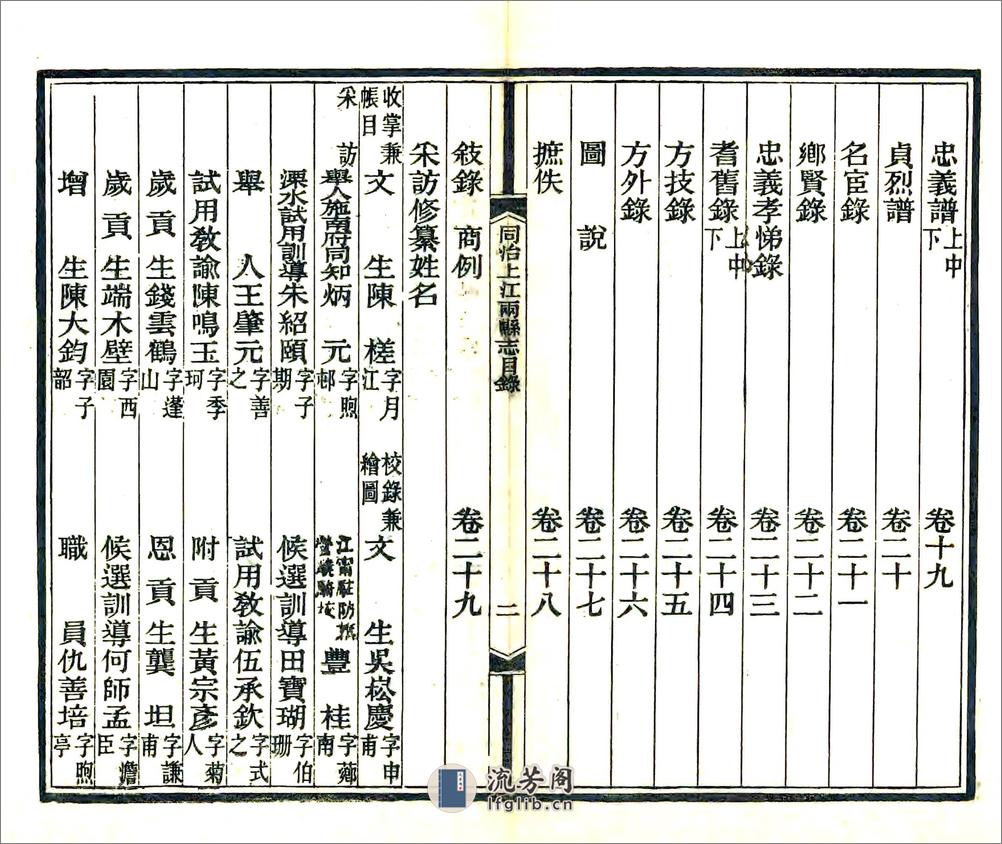 忠義譜上中下 卷十九
貞烈譜 卷二十
名宦錄 卷二十一
鄉賢錄 卷二十二
忠義孝悌錄 卷二十三
耆舊錄上中下 卷二十四
方技錄 卷二十五
方外錄 卷二十六
圖說 卷二十七
摭佚 卷二十八
同治上江兩縣志目錄 二
敍錄 商例 卷二十九
采訪修纂姓名
收掌兼帳目 文生陳槎字月江 校錄兼繪圖 文生吳崧慶字申甫
采訪 舉人施南府同知炳元字煦邨 江甯駐防 豐桂字薌南
溧水試用訓導朱紹頤字子期 候選訓導田寶瑚字伯珊
舉人王肇元字善之 試用敎諭伍承欽字式之
試用敎諭陳鳴玉字季珂 附貢生黃宗彥字菊人
歲貢生錢雲鶴字蓬山 恩貢生龔坦字謙甫
歲貢生端木壁字西園 候選訓導何師孟字澹臣
增生陳大鈞字子韶 職員仇善培字煦亭
流芳阁
lfglib.cn